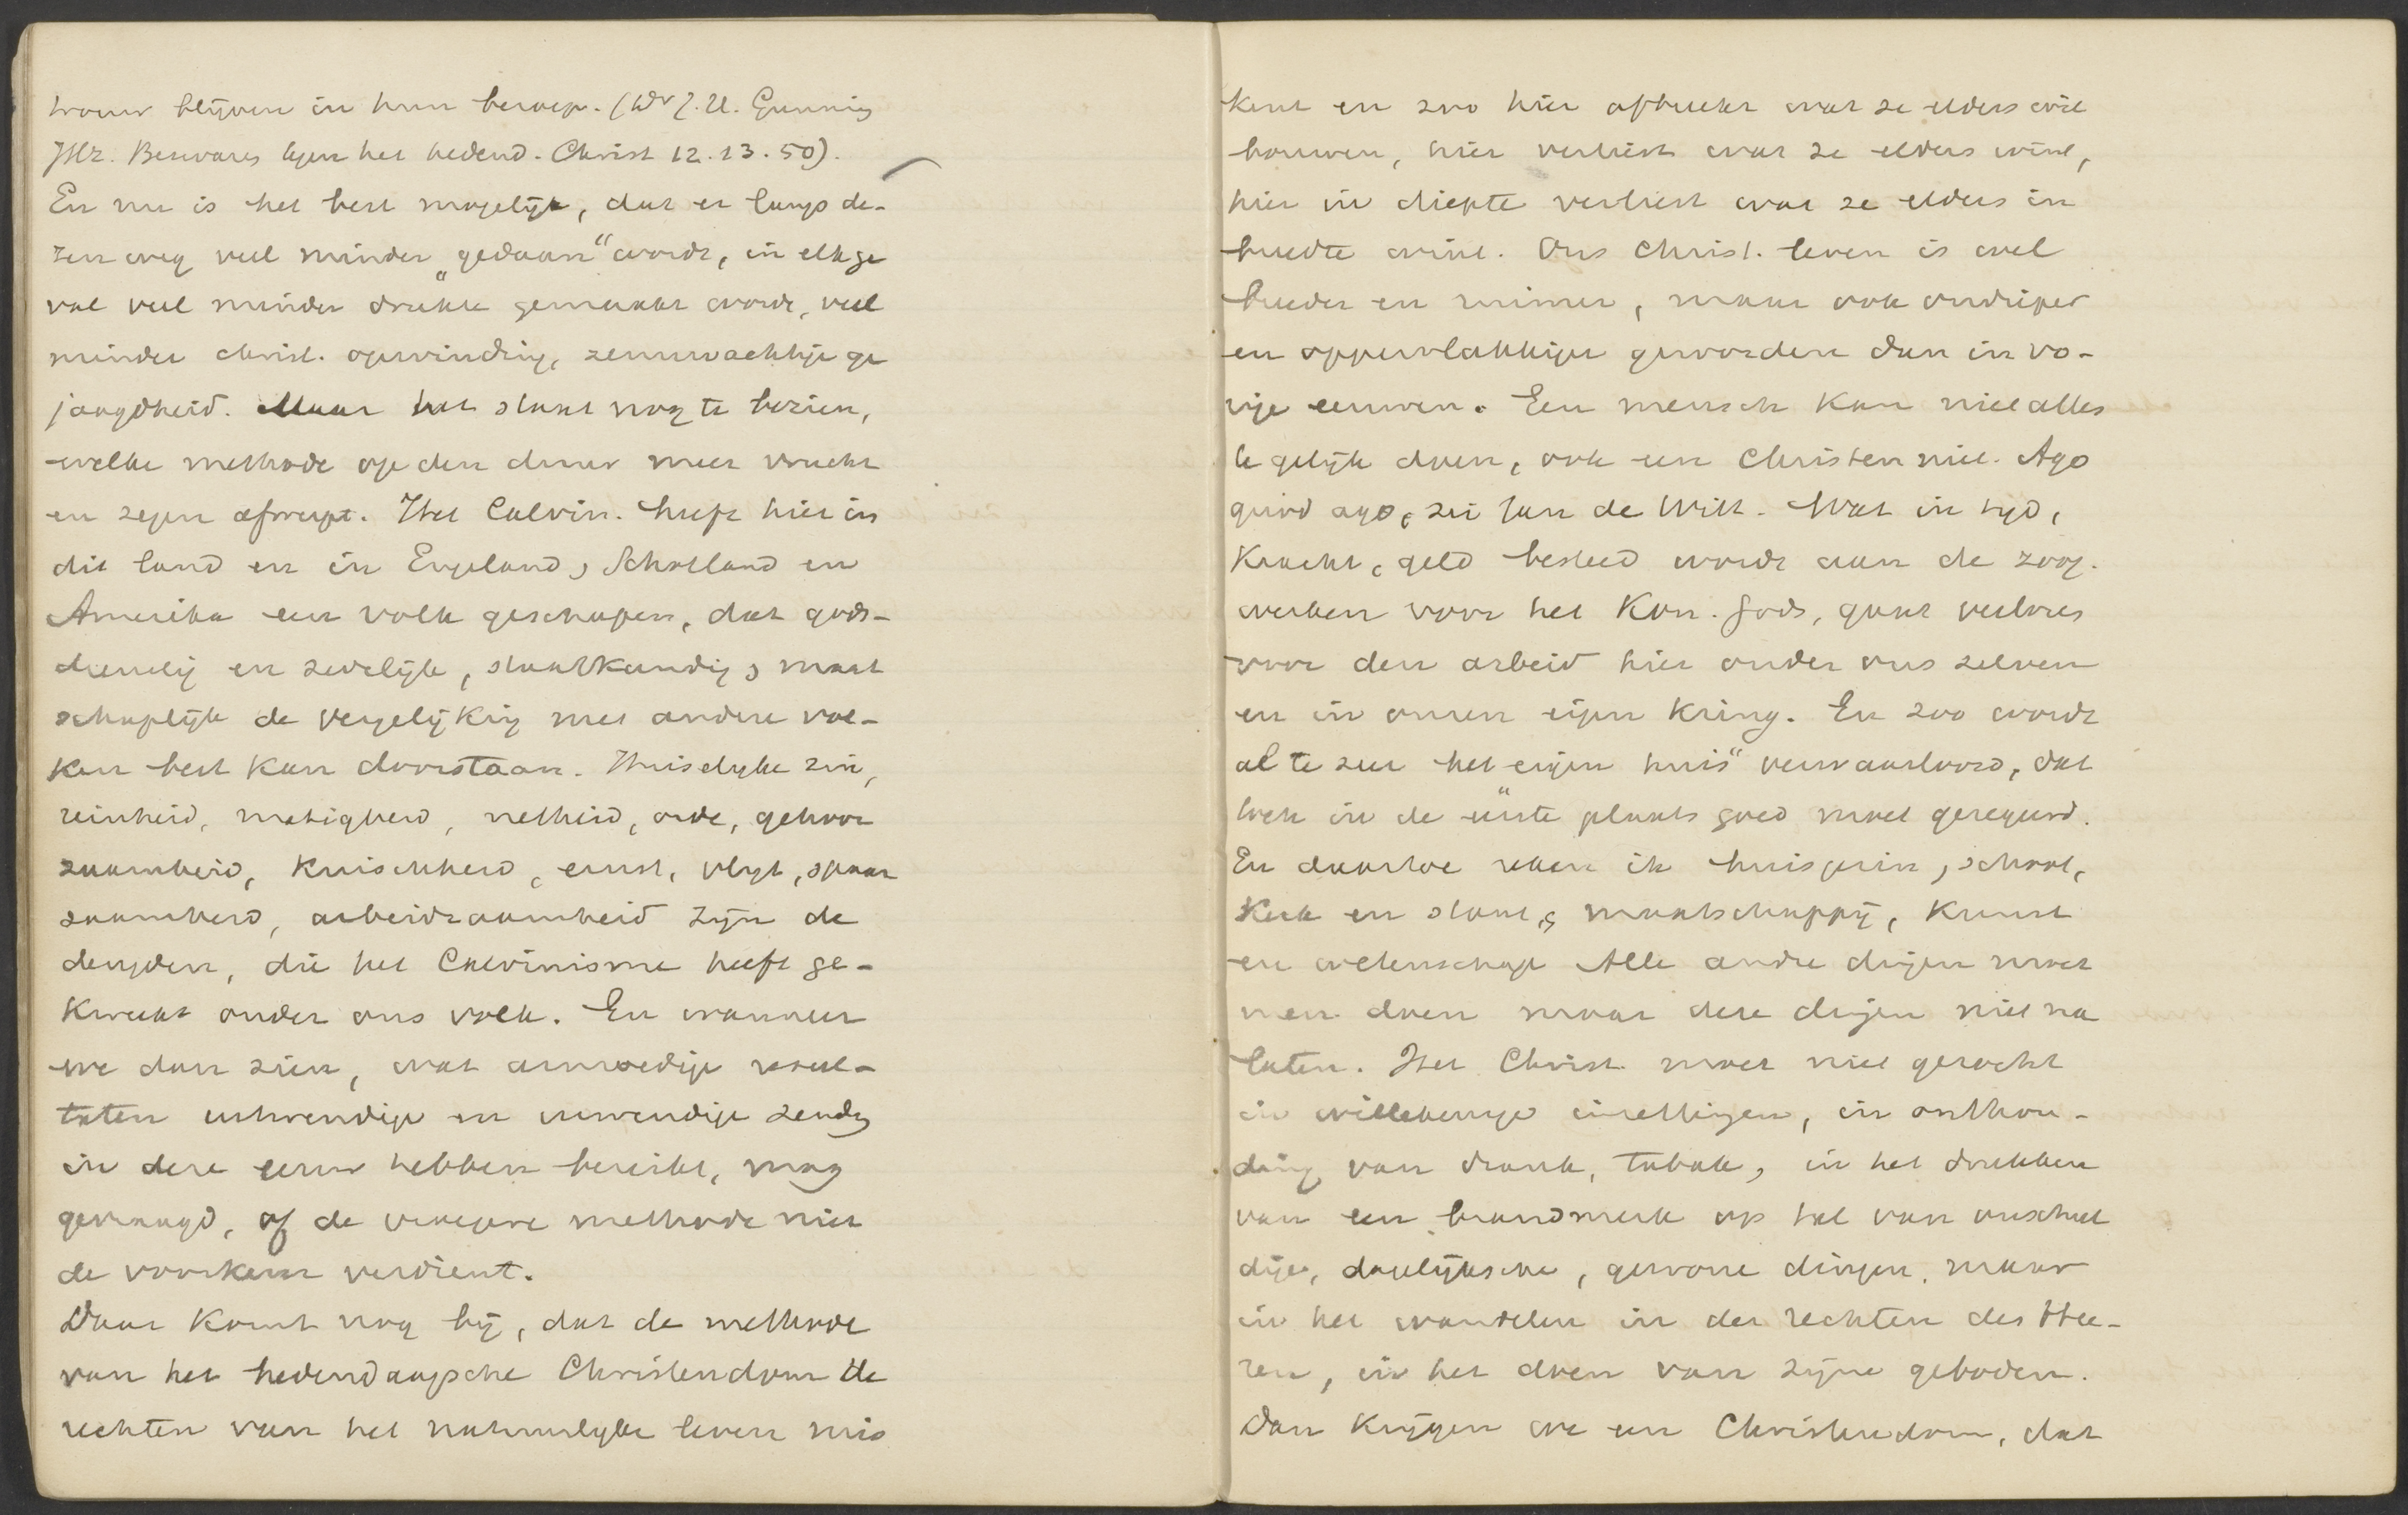 trouw blijven in hun beroep. (Dr J. H. Gunning
JHz. Bezwaren tegen het hedend. Christ 12. 13. 50).
En nu is het best mogelijk, dat er langs de-
zen weg veel minder „gedaan“ wordt, in elk ge
val veel minder drukte gemaakt wordt, veel
minder christ. opwinding, zenuwachtige ge
jaagdheid. Maar het staat nog te bezien,
welke methode op den duur meer vrucht
en zegen afwerpt. Het Calvin. heeft hier in
dit land en in Engeland, Schotland en
Amerika een volk geschapen, dat gods-
dienstig en zedelijk, staatkundig, maat
schaplijk de vergelijking met andere vol-
ken best kan doorstaan. Huiselijke zin,
reinheid, matigheid, netheid, orde, gehoor
zaamheid, kuischheid, ernst, vlijt, spaar
zaamheid, arbeidzaamheid zijn de
deugden, die het Calvinisme heeft ge-
kweekt onder ons volk. En wanneer
we dan zien, wat armoedige resul-
taten uitwendige en inwendige zending
in deze eeuw hebben bereikt, mag
gevraagd, of de vroegere methode niet
de voorkeur verdient.
Daar komt nog bij, dat de methode
van het hedendaagsche Christendom de
rechten van het natuurlijke leven mis
kent en zoo hier afbreekt wat ze elders wil
bouwen, hier verliest wat ze elders wint,
hier in diepte verliest wat ze elders in
breedte wint. Ons Christ. leven is wel
breeder en ruimer, maar ook ondieper
en oppervlakkiger geworden dan in vo-
rige eeuwen. Een mensch kan niet alles
te gelijk doen, ook een Christen niet. Ago
quod ago, zei Jan de Witt. Wat in tijd,
kracht, geld besteed wordt aan de zoog.
werken voor het Kon. Gods, gaat verloren
voor den arbeid hier onder ons zelven
en in onzen eigen kring. En zoo wordt
al te zeer het „eigen huis“ verwaarloosd, dat
toch in de eerste plaats goed moet geregeerd.
En daartoe reken ik huisgezin, school,
kerk en staat, maatschappij, kunst
en wetenschap Alle andre dingen moet
men doen maar deze dingen niet na
laten. Het Christ. moet niet gezocht
in willekeurige instellingen, in onthou-
ding van drank, tabak, in het drukken
van een brandmerk op tal van onschul
dige, dagelijksche, gewone dingen, maar
in het wandelen in de rechten des Hee-
ren, in het doen van zijne geboden.
Dan krijgen we een Christendom, dat